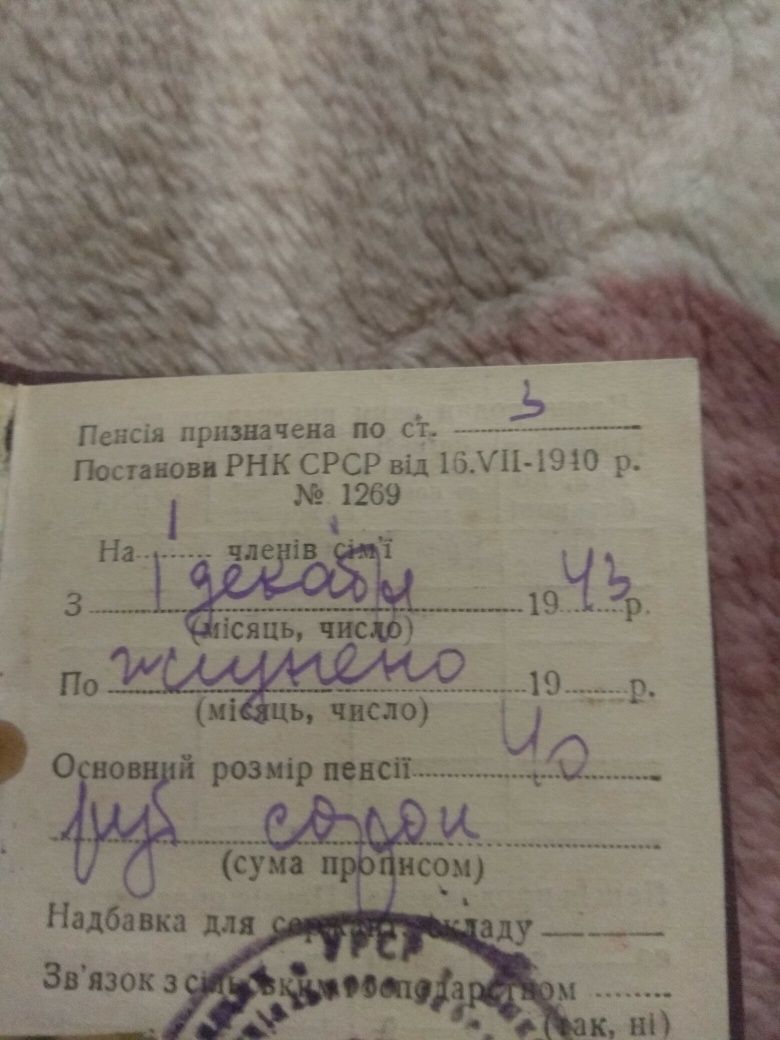 Пенсія призначена по ст. 3
Постанови РНК СРСР від 16.VII-1940 р.
№ 1269
На 1 членів сім'ї
З 1 декабря 1943 р.
(місяць, число)
По 19 р.
(місяць, число)
Основний розмір пенсії 40
руб сорок
(сума прописом)
Надбавка для сержант. складу
УРСР
Зв'язок з сільським господарством
(так, ні)